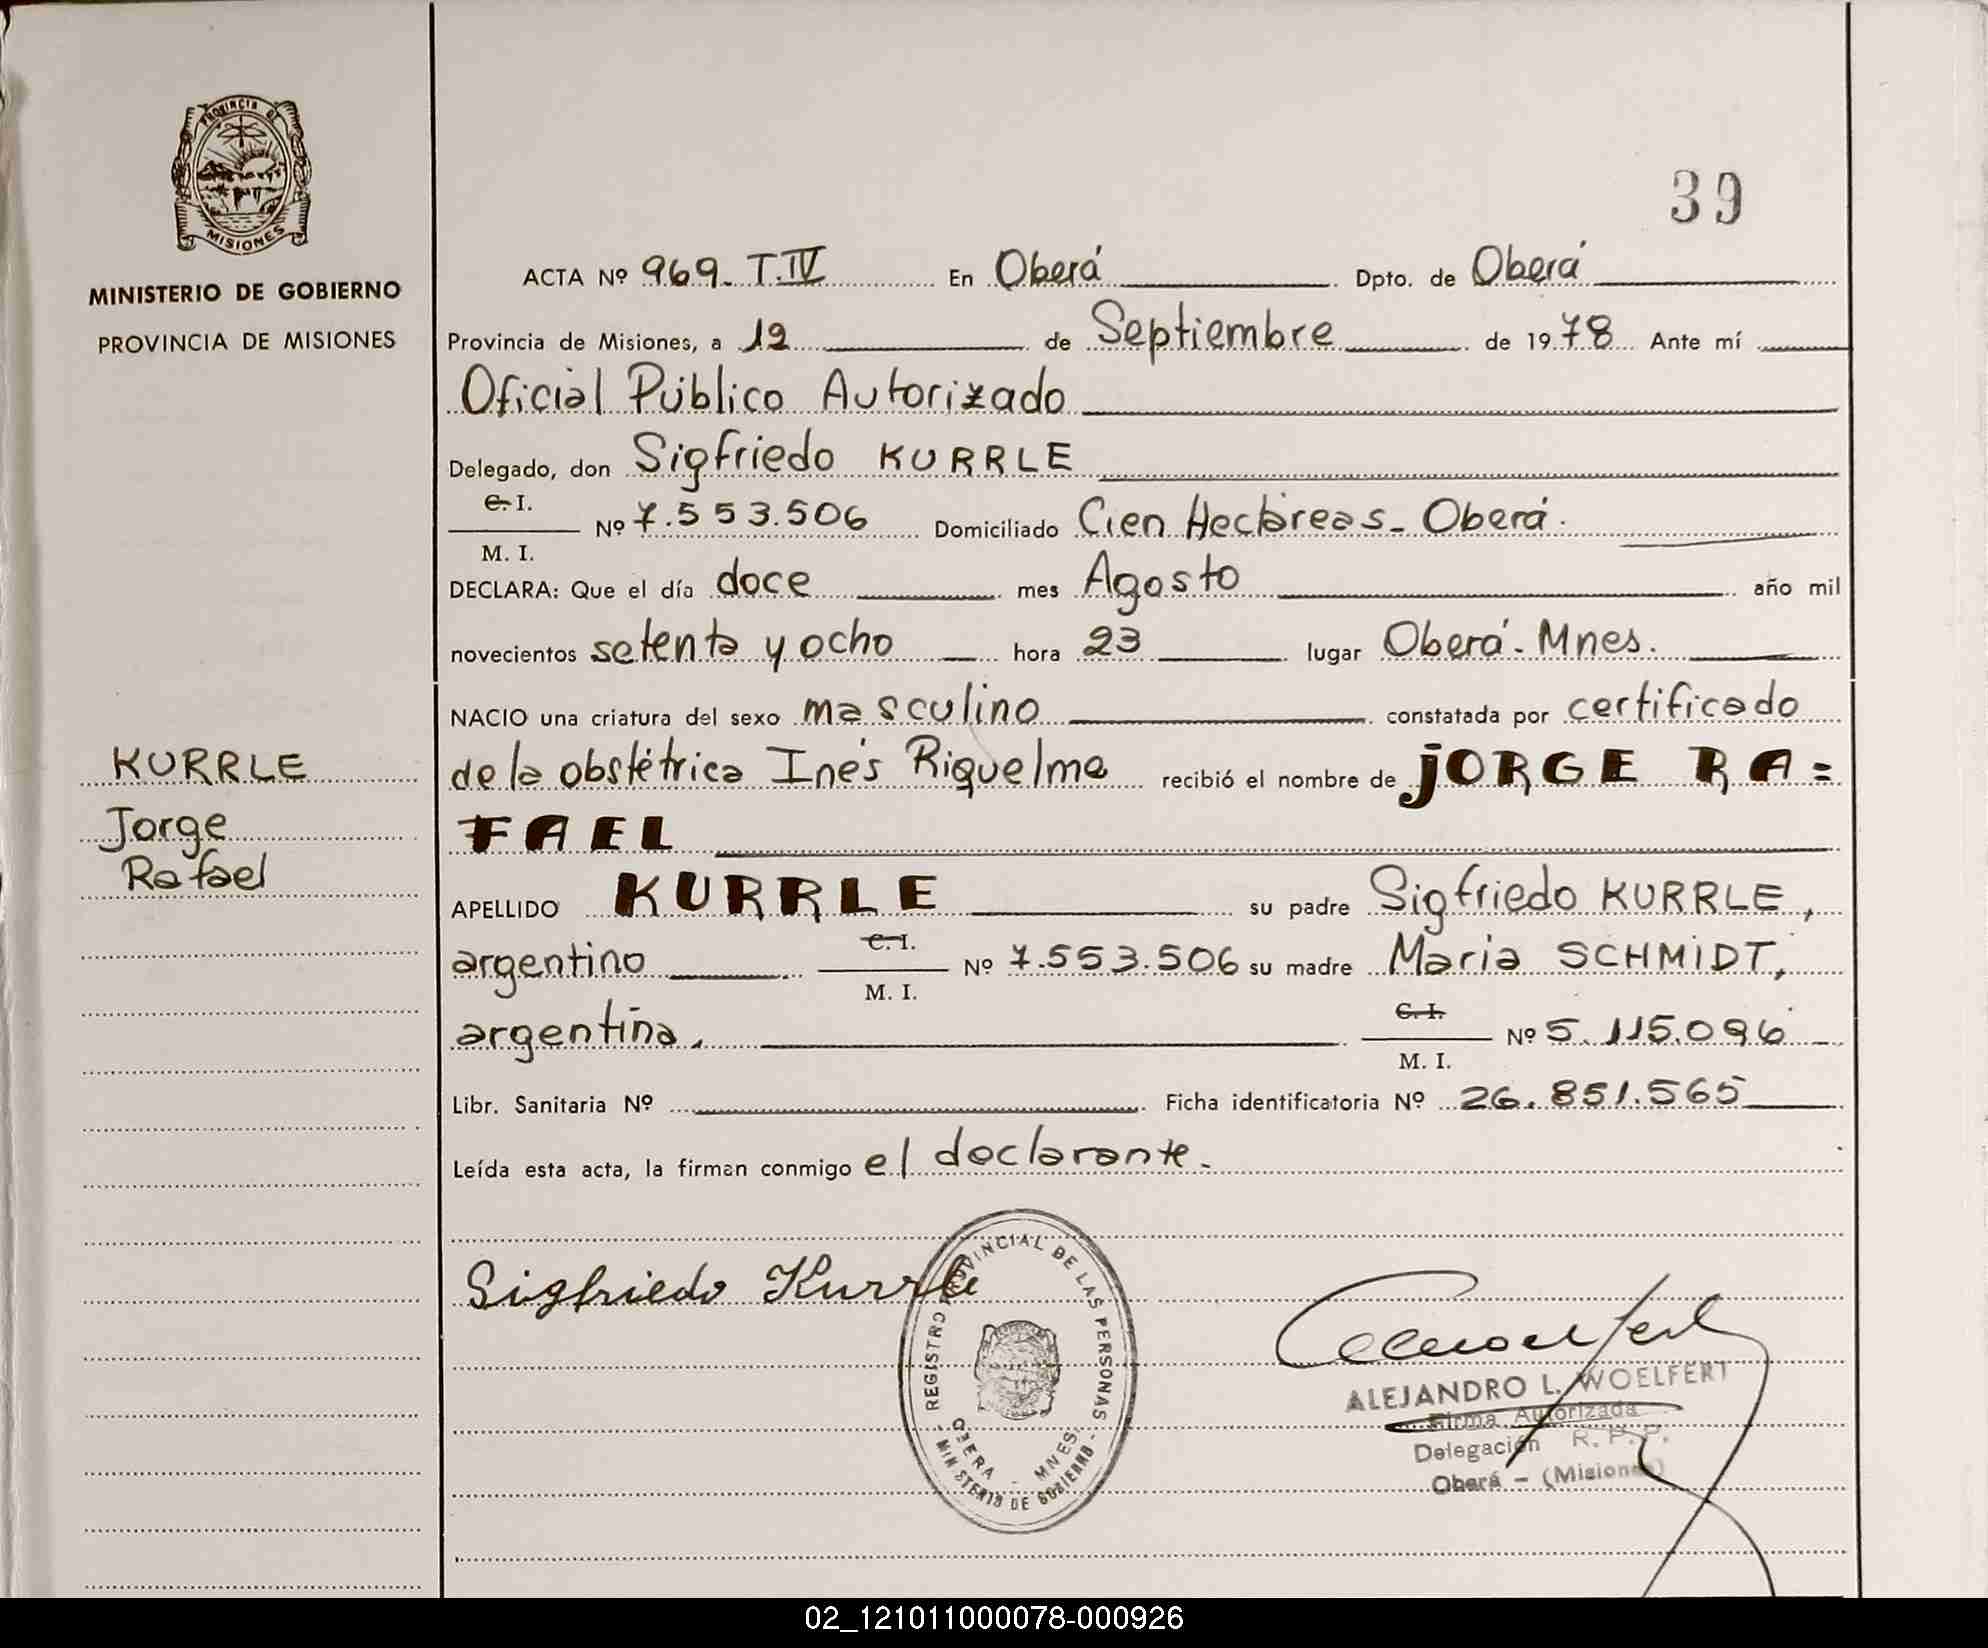 PROVINCIA DE
MISIONES
MINISTERIO DE GOBIERNO
PROVINCIA DE MISIONES
KURRLE
Jorge
Rafael
39
ACTA Nº 969- T.IV En Oberá Dpto. de Oberá
Provincia de Misiones, a 12 de Septiembre de 1978 Ante mí
Oficial Público Autorizado
Delegado, don Sigfriedo KURRLE
C. I.
M. I.
Nº 7.553.506 Domiciliado Cien Hectáreas - Oberá.
DECLARA: Que el día doce mes Agosto año mil
novecientos setenta y ocho hora 23 lugar Oberá - Mnes.
NACIO una criatura del sexo masculino constatada por certificado
de la obstétrica Inés Riquelme recibió el nombre de JORGE RA=
FAEL
APELLIDO KURRLE su padre Sigfriedo KURRLE,
argentino C. I. M. I. Nº 7.553.506 su madre Maria SCHMIDT,
argentina. C. I. M. I. Nº 5.115.096
Libr. Sanitaria Nº Ficha identificatoria Nº 26.851.565
Leída esta acta, la firman conmigo el declarante.
Sigfriedo Kurrle
REGISTRO PROVINCIAL DE LAS PERSONAS
OBERA - MNES.
- MINISTERIO DE GOBIERNO -
ALEJANDRO L. WOELFERT
Firma Autorizada
Delegación R. P. P.
Oberá - (Misiones)
02_121011000078-000926